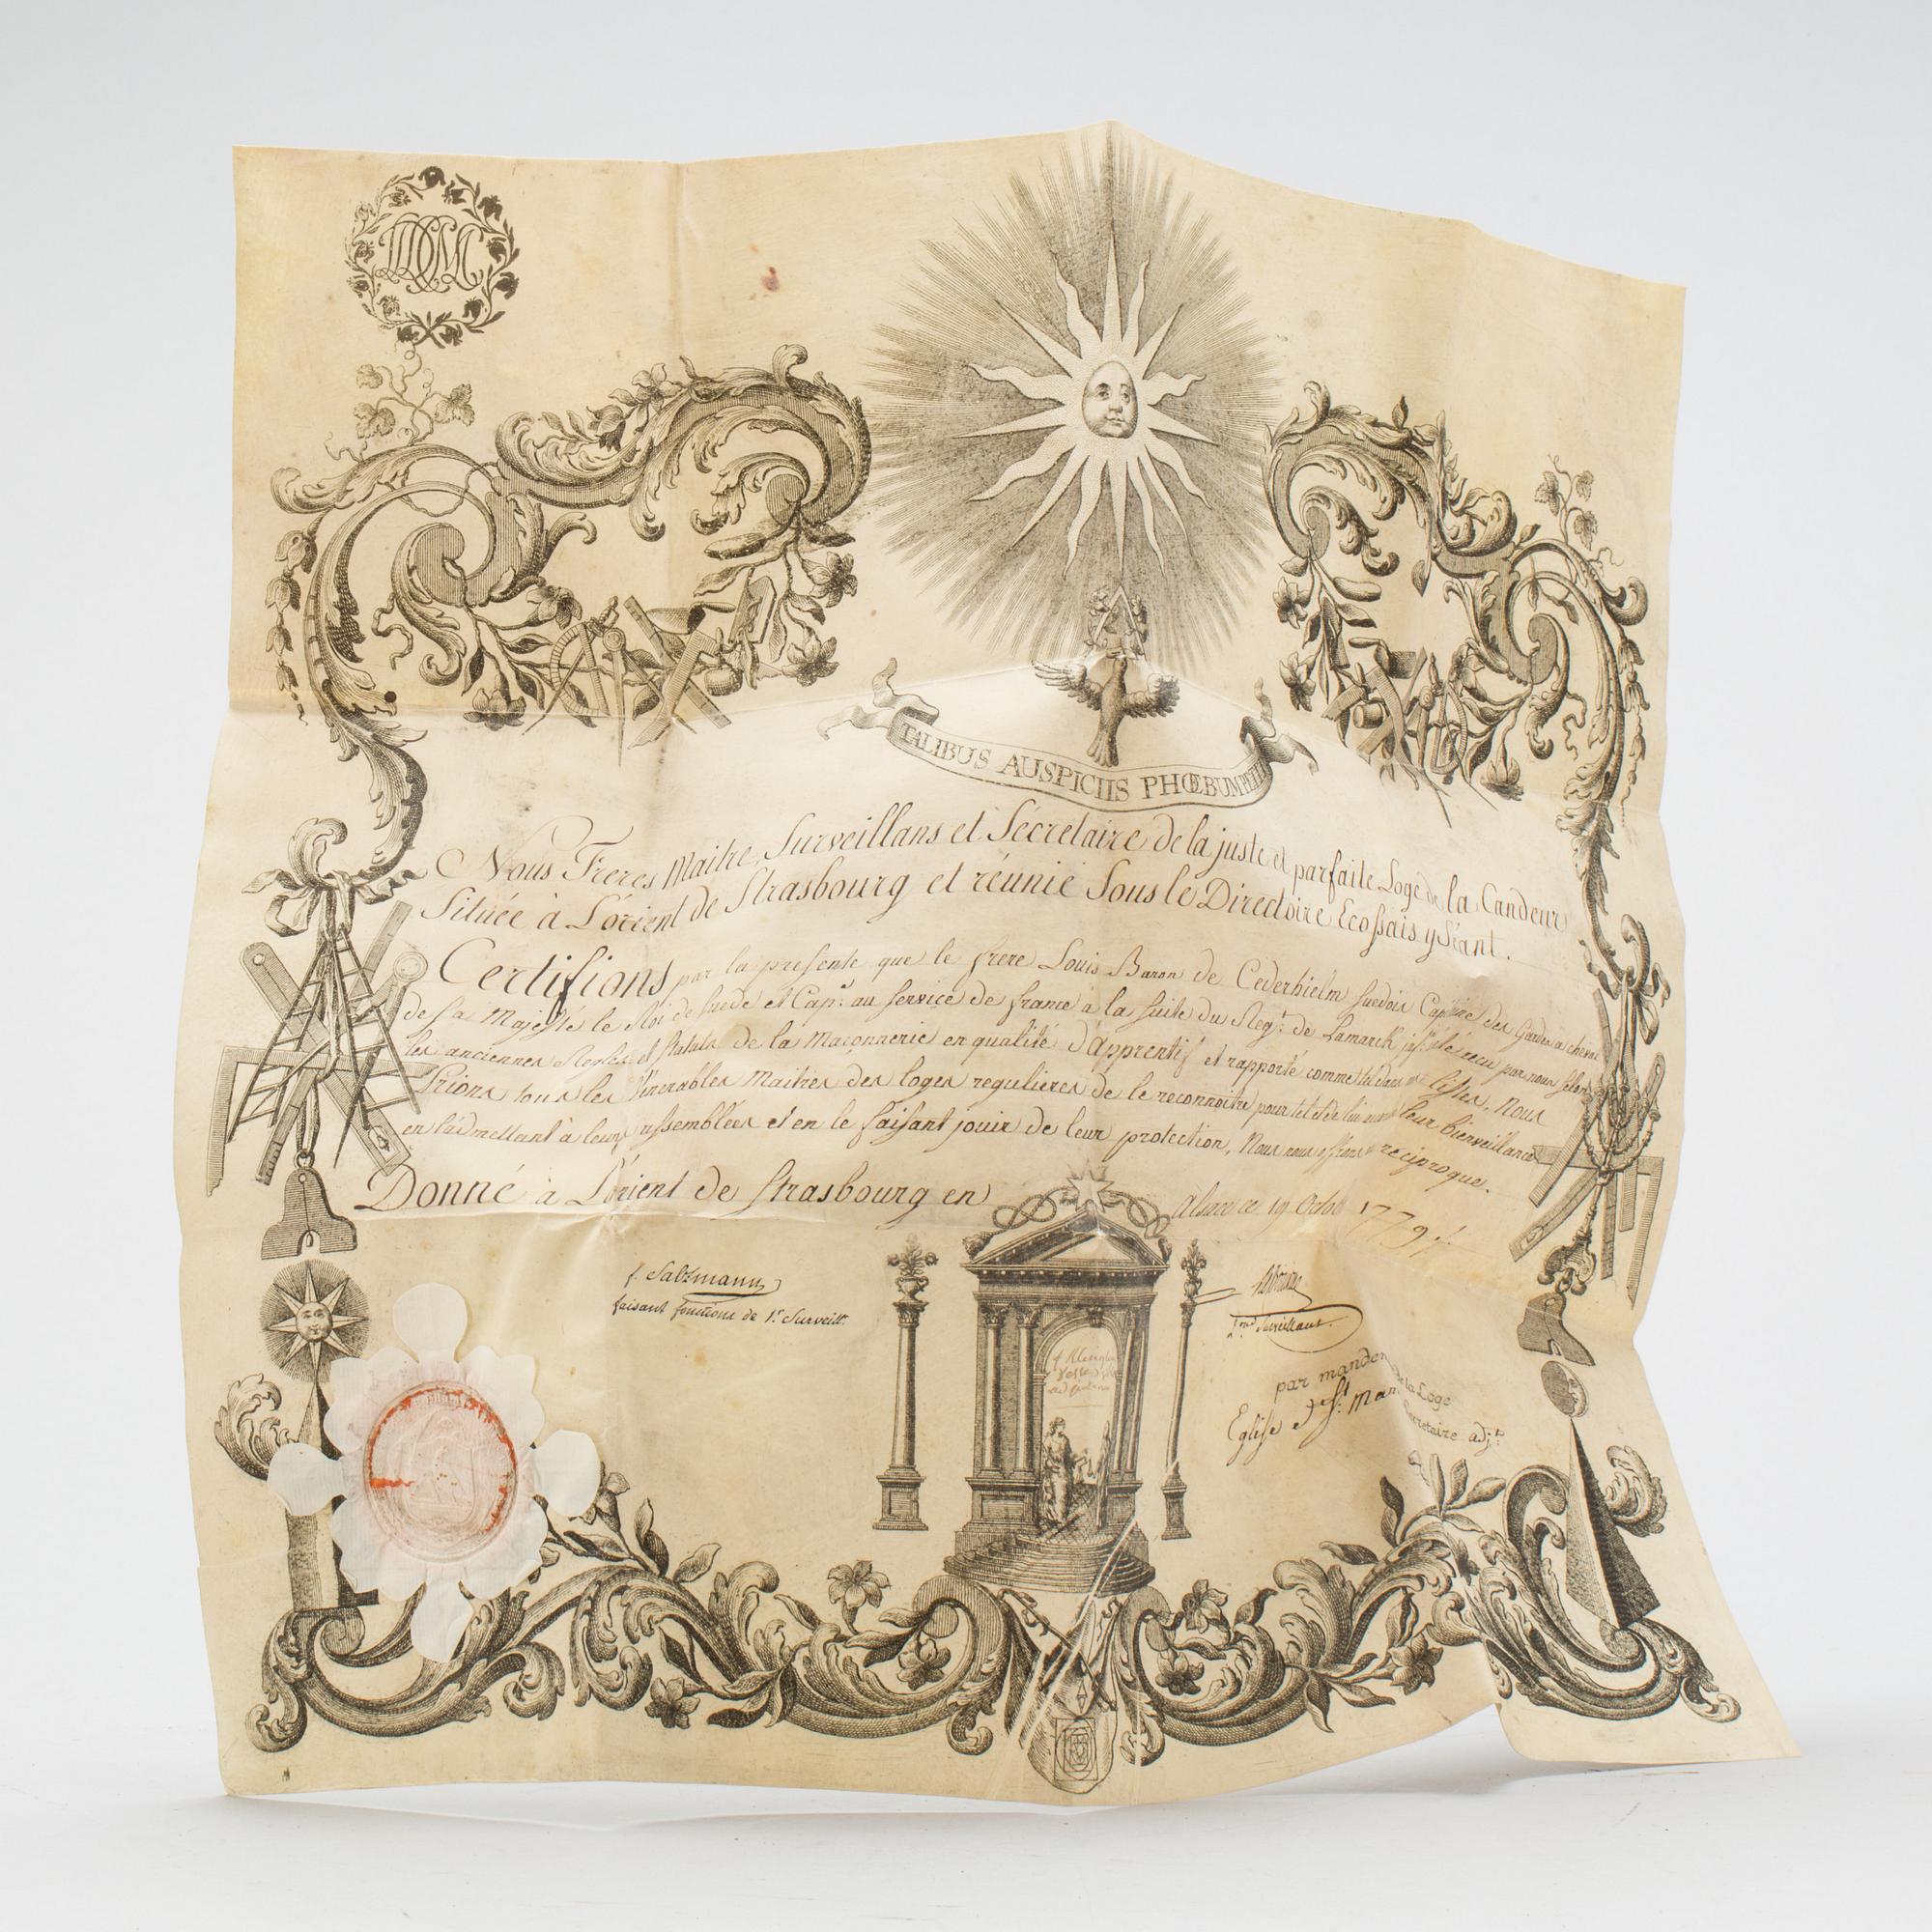 DOM
TALIBUS AUSPICIIS PHŒBUM
Nous Freres Maitre, Surveillans et Sécretaire de la juste et parfaite Loge de la Candeur
Située à L'orient de Strasbourg et réunie Sous le Directoire Ecossais y Séant.
Certifions par la presente que le frere Louis Baron de Cederhielm suedois Capitaine des Gardes a cheval
de sa Majesté le Roi de suede et Cap.ne au service de france a la suite du Reg.t de Lamarck été recu par nous selon
les anciennes Regles et statuts de la Maçonnerie en qualité d'Apprentif et rapporté comme tel dans nos Listes. Nous
Prions tous les Venerables Maitres des loges regulieres de le reconnoitre pour tel et de lui leur bienveillance
en l'admettant à leurs assemblées et en le faisant jouir de leur protection, Nous nous offrons reciproque.
Donné à L'orient de Strasbourg en Alsace ce 19 Octob 177
f. Salzmann
faisant fonctions de 1.r Surveill.
2.nd Surveillant.
par mander de la Loge
Secretaire adj.t